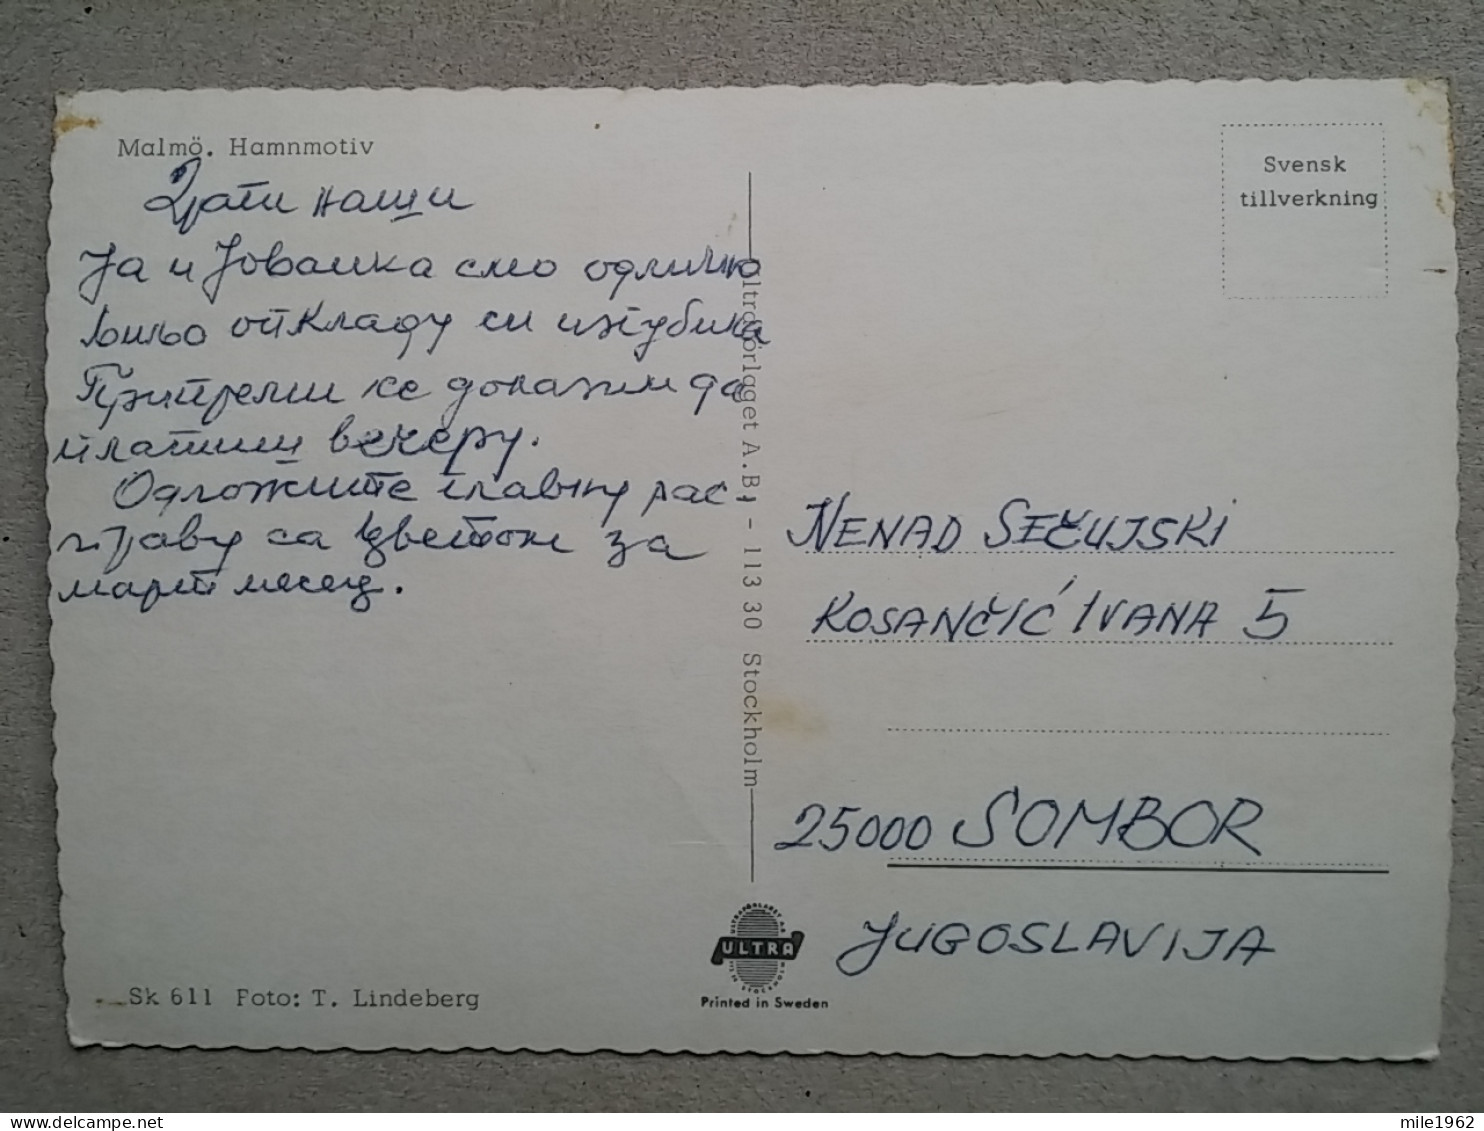 Malmö. Hamnmotiv
Драги наши
Ја и Јованка смо одлично
Биљо опкладу си изгубила
Припреми се да
платиш вечеру.
Одложите главну рас-
праву са Цветом за
март месец.
Sk 611 Foto: T. Lindeberg
Ultraförlaget A.B. - 113 30 Stockholm
ULTRA
Printed in Sweden
Svensk
tillverkning
NENAD SEČUJSKI
KOSANČIĆ IVANA 5
25000 SOMBOR
JUGOSLAVIJA
mile1962